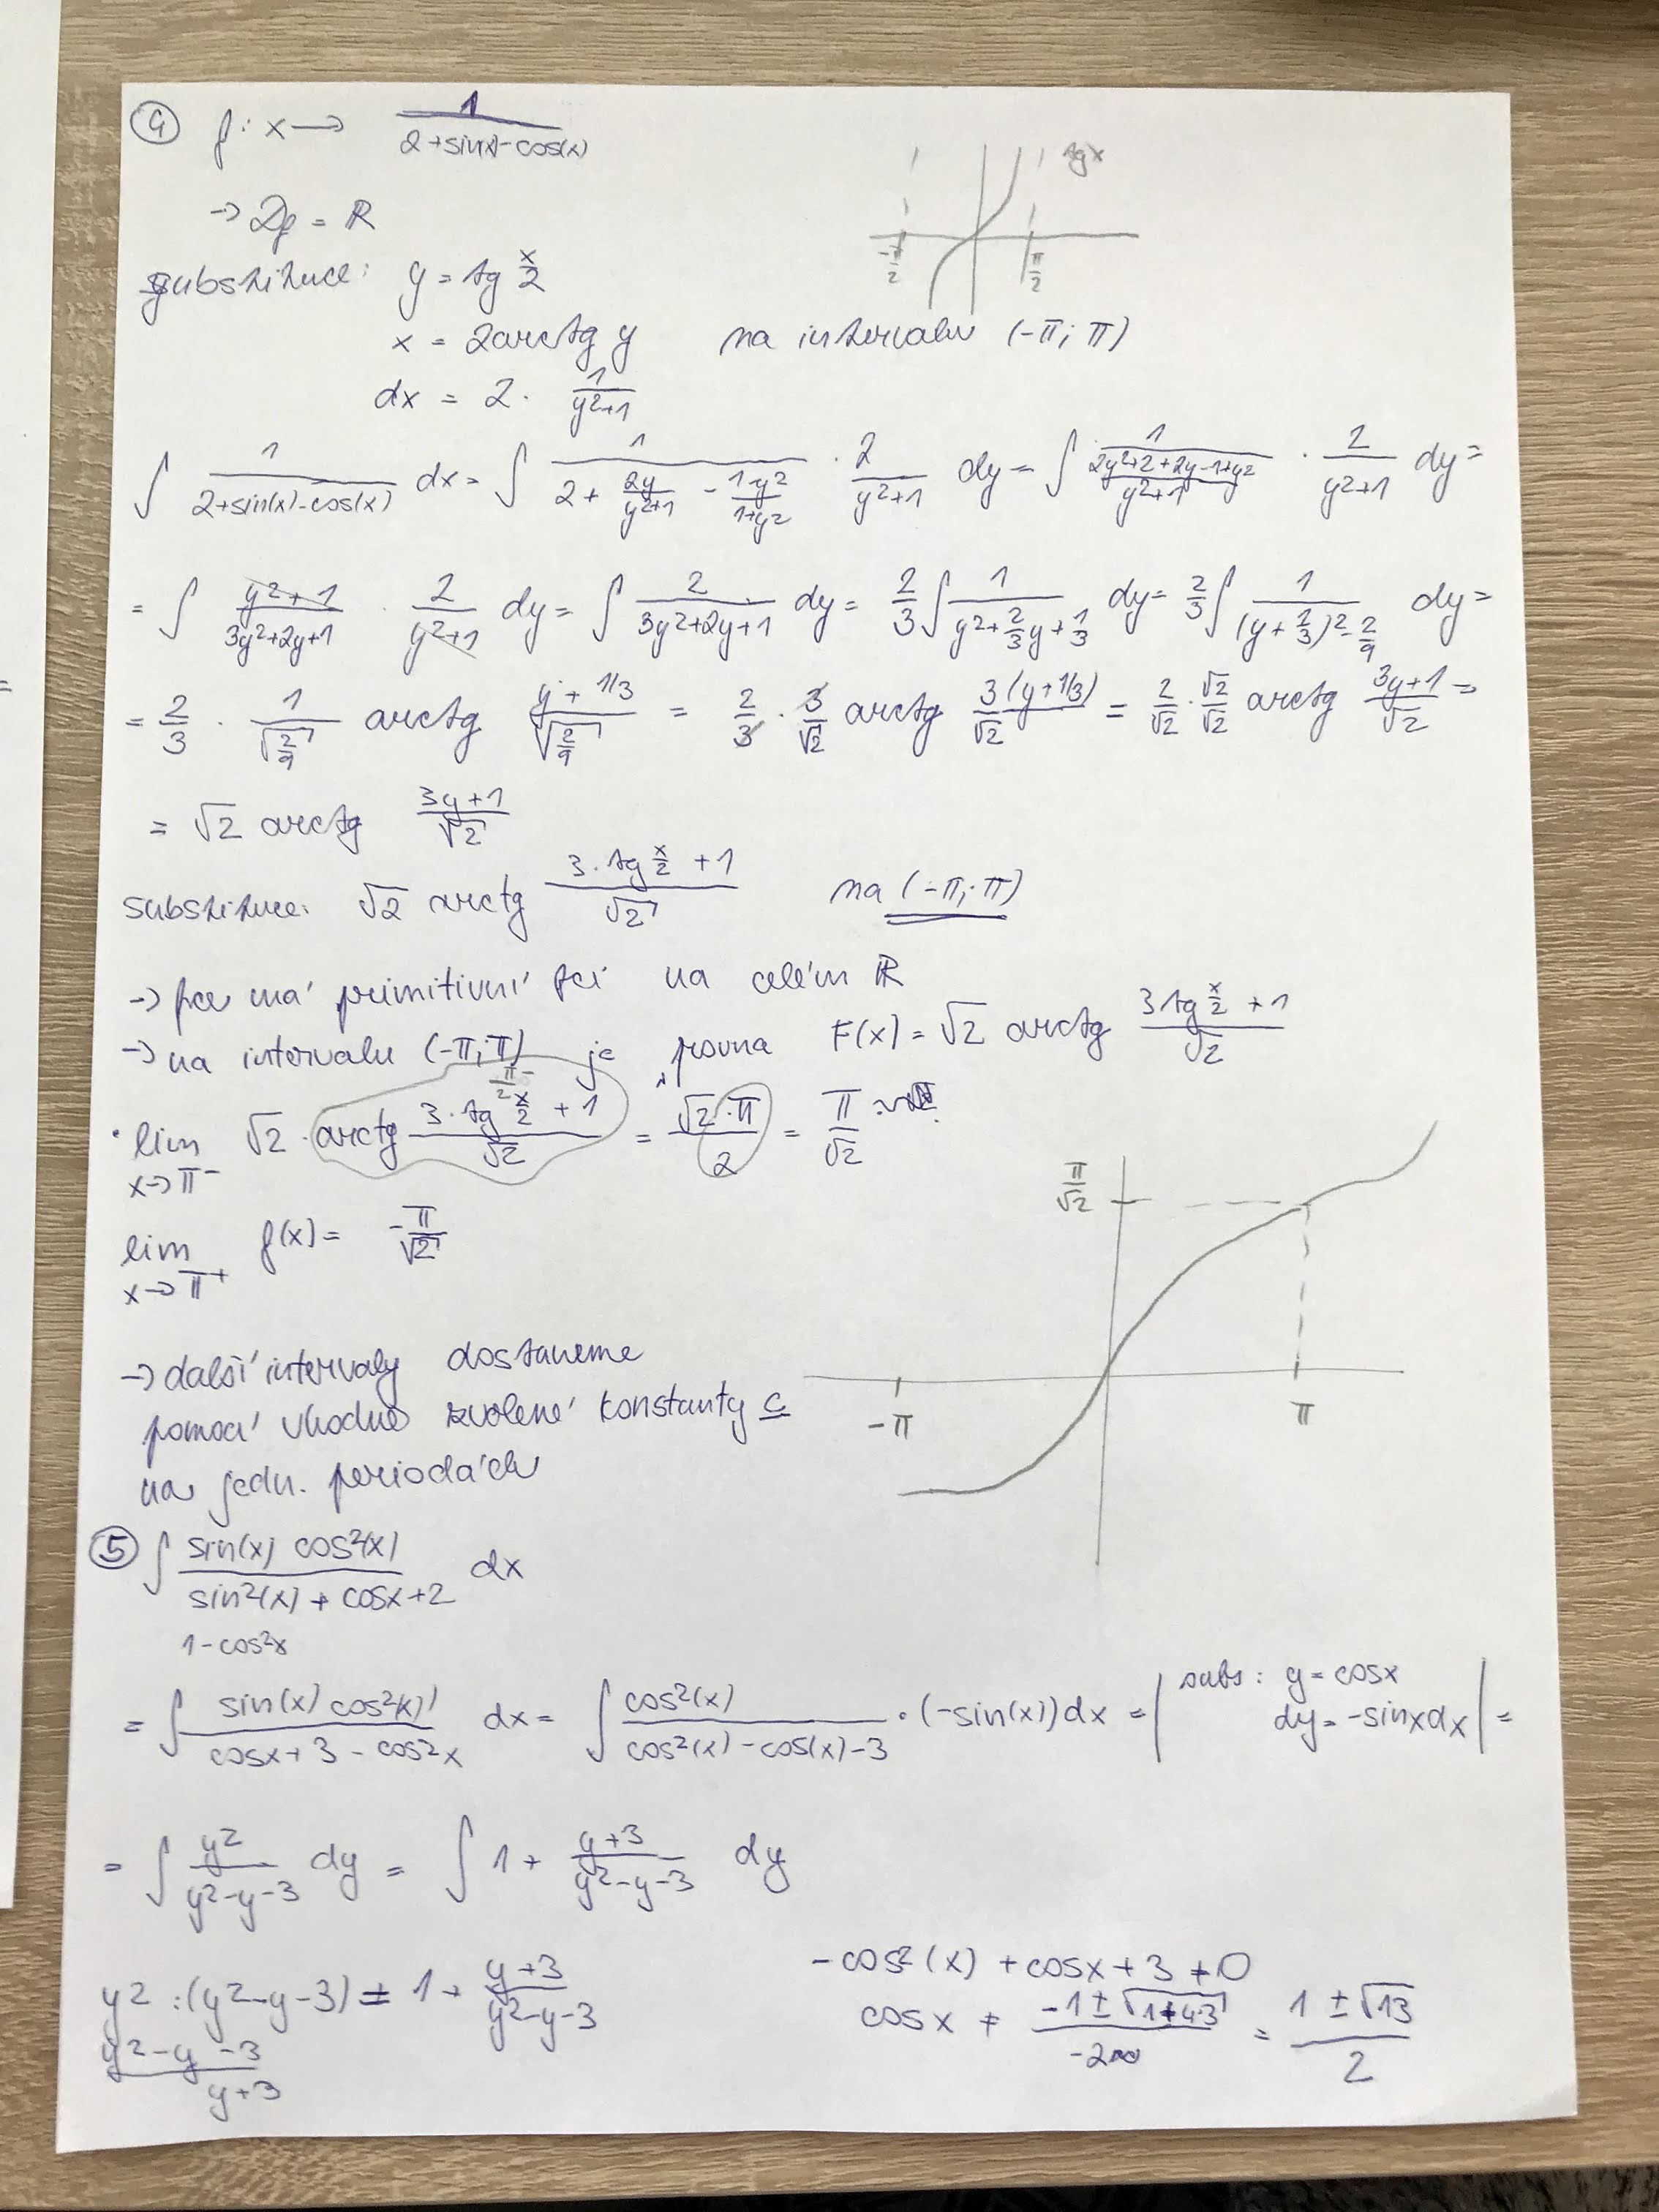 ④ f: x → 1/(2+sin(x)-cos(x))
tg x
-π/2 π/2
→ Df = ℝ
substituce: y = tg x/2
x = 2arctg y na intervalu (-π; π)
dx = 2 · 1/(y²+1)
∫ 1/(2+sin(x)-cos(x)) dx = ∫ 1/(2 + 2y/(y²+1) - (1-y²)/(1+y²)) · 2/(y²+1) dy = ∫ 1/((2y²+2+2y-1+y²)/(y²+1)) · 2/(y²+1) dy =
= ∫ (y²+1)/(3y²+2y+1) · 2/(y²+1) dy = ∫ 2/(3y²+2y+1) dy = 2/3 ∫ 1/(y²+2/3y+1/3) dy = 2/3 ∫ 1/((y+2/3)²-2/9) dy =
= 2/3 · 1/√(2/9) arctg (y+1/3)/√(2/9) = 2/3 · 3/√2 arctg 3(y+1/3)/√2 = 2/√2 · √2/√2 arctg (3y+1)/√2 =
= √2 arctg (3y+1)/√2
substituce: √2 arctg (3·tg x/2 +1)/√2 na (-π; π)
→ fce má primitivní fci na celém ℝ
→ na intervalu (-π; π) je rovna F(x) = √2 arctg (3 tg x/2 +1)/√2
lim x→π⁻ √2 · arctg (3·tg x/2 +1)/√2 = √2·π/2 = π/√2
lim x→π⁺ f(x) = -π/√2
π/√2
-π π
→ další intervaly dostaneme
pomocí vhodně zvolené konstanty c
na jedn. periodách
⑤ ∫ sin(x) cos²(x)/(sin²(x) + cosx+2) dx
1-cos²x
= ∫ sin(x) cos²(x)/(cosx+3-cos²x) dx = ∫ cos²(x)/(cos²(x)-cos(x)-3) · (-sin(x))dx = | subs: y = cosx
dy = -sinxdx | =
= ∫ y²/(y²-y-3) dy = ∫ 1 + (y+3)/(y²-y-3) dy
y² : (y²-y-3) = 1 + (y+3)/(y²-y-3)
y²-y-3
y+3
-cos²(x) + cosx+3 ≠ 0
cosx ≠ (-1±√(1+4·3))/-2 = (1±√13)/2